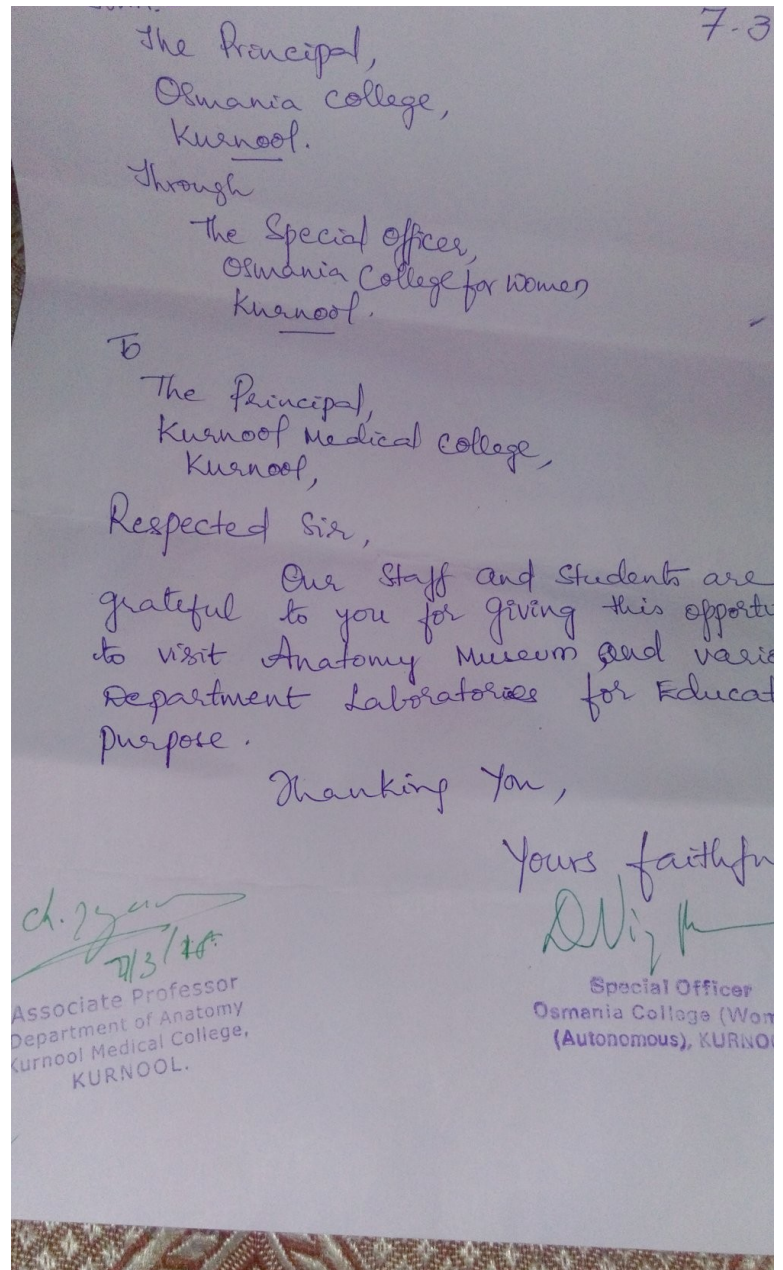 7-3
The Principal,
Osmania College,
Kurnool.
Through
The Special Officer,
Osmania College for Women
Kurnool.
To
The Principal,
Kurnool Medical College,
Kurnool,
Respected Sir,
Our Staff and Students are
grateful to you for giving this opportu
to visit Anatomy Museum and vario
Department Laboratories for Educat
purpose.
Thanking You,
Yours faithfu
7/3/18
Associate Professor
Department of Anatomy
Kurnool Medical College,
KURNOOL.
Special Officer
Osmania College (Wom
(Autonomous), KURNOO